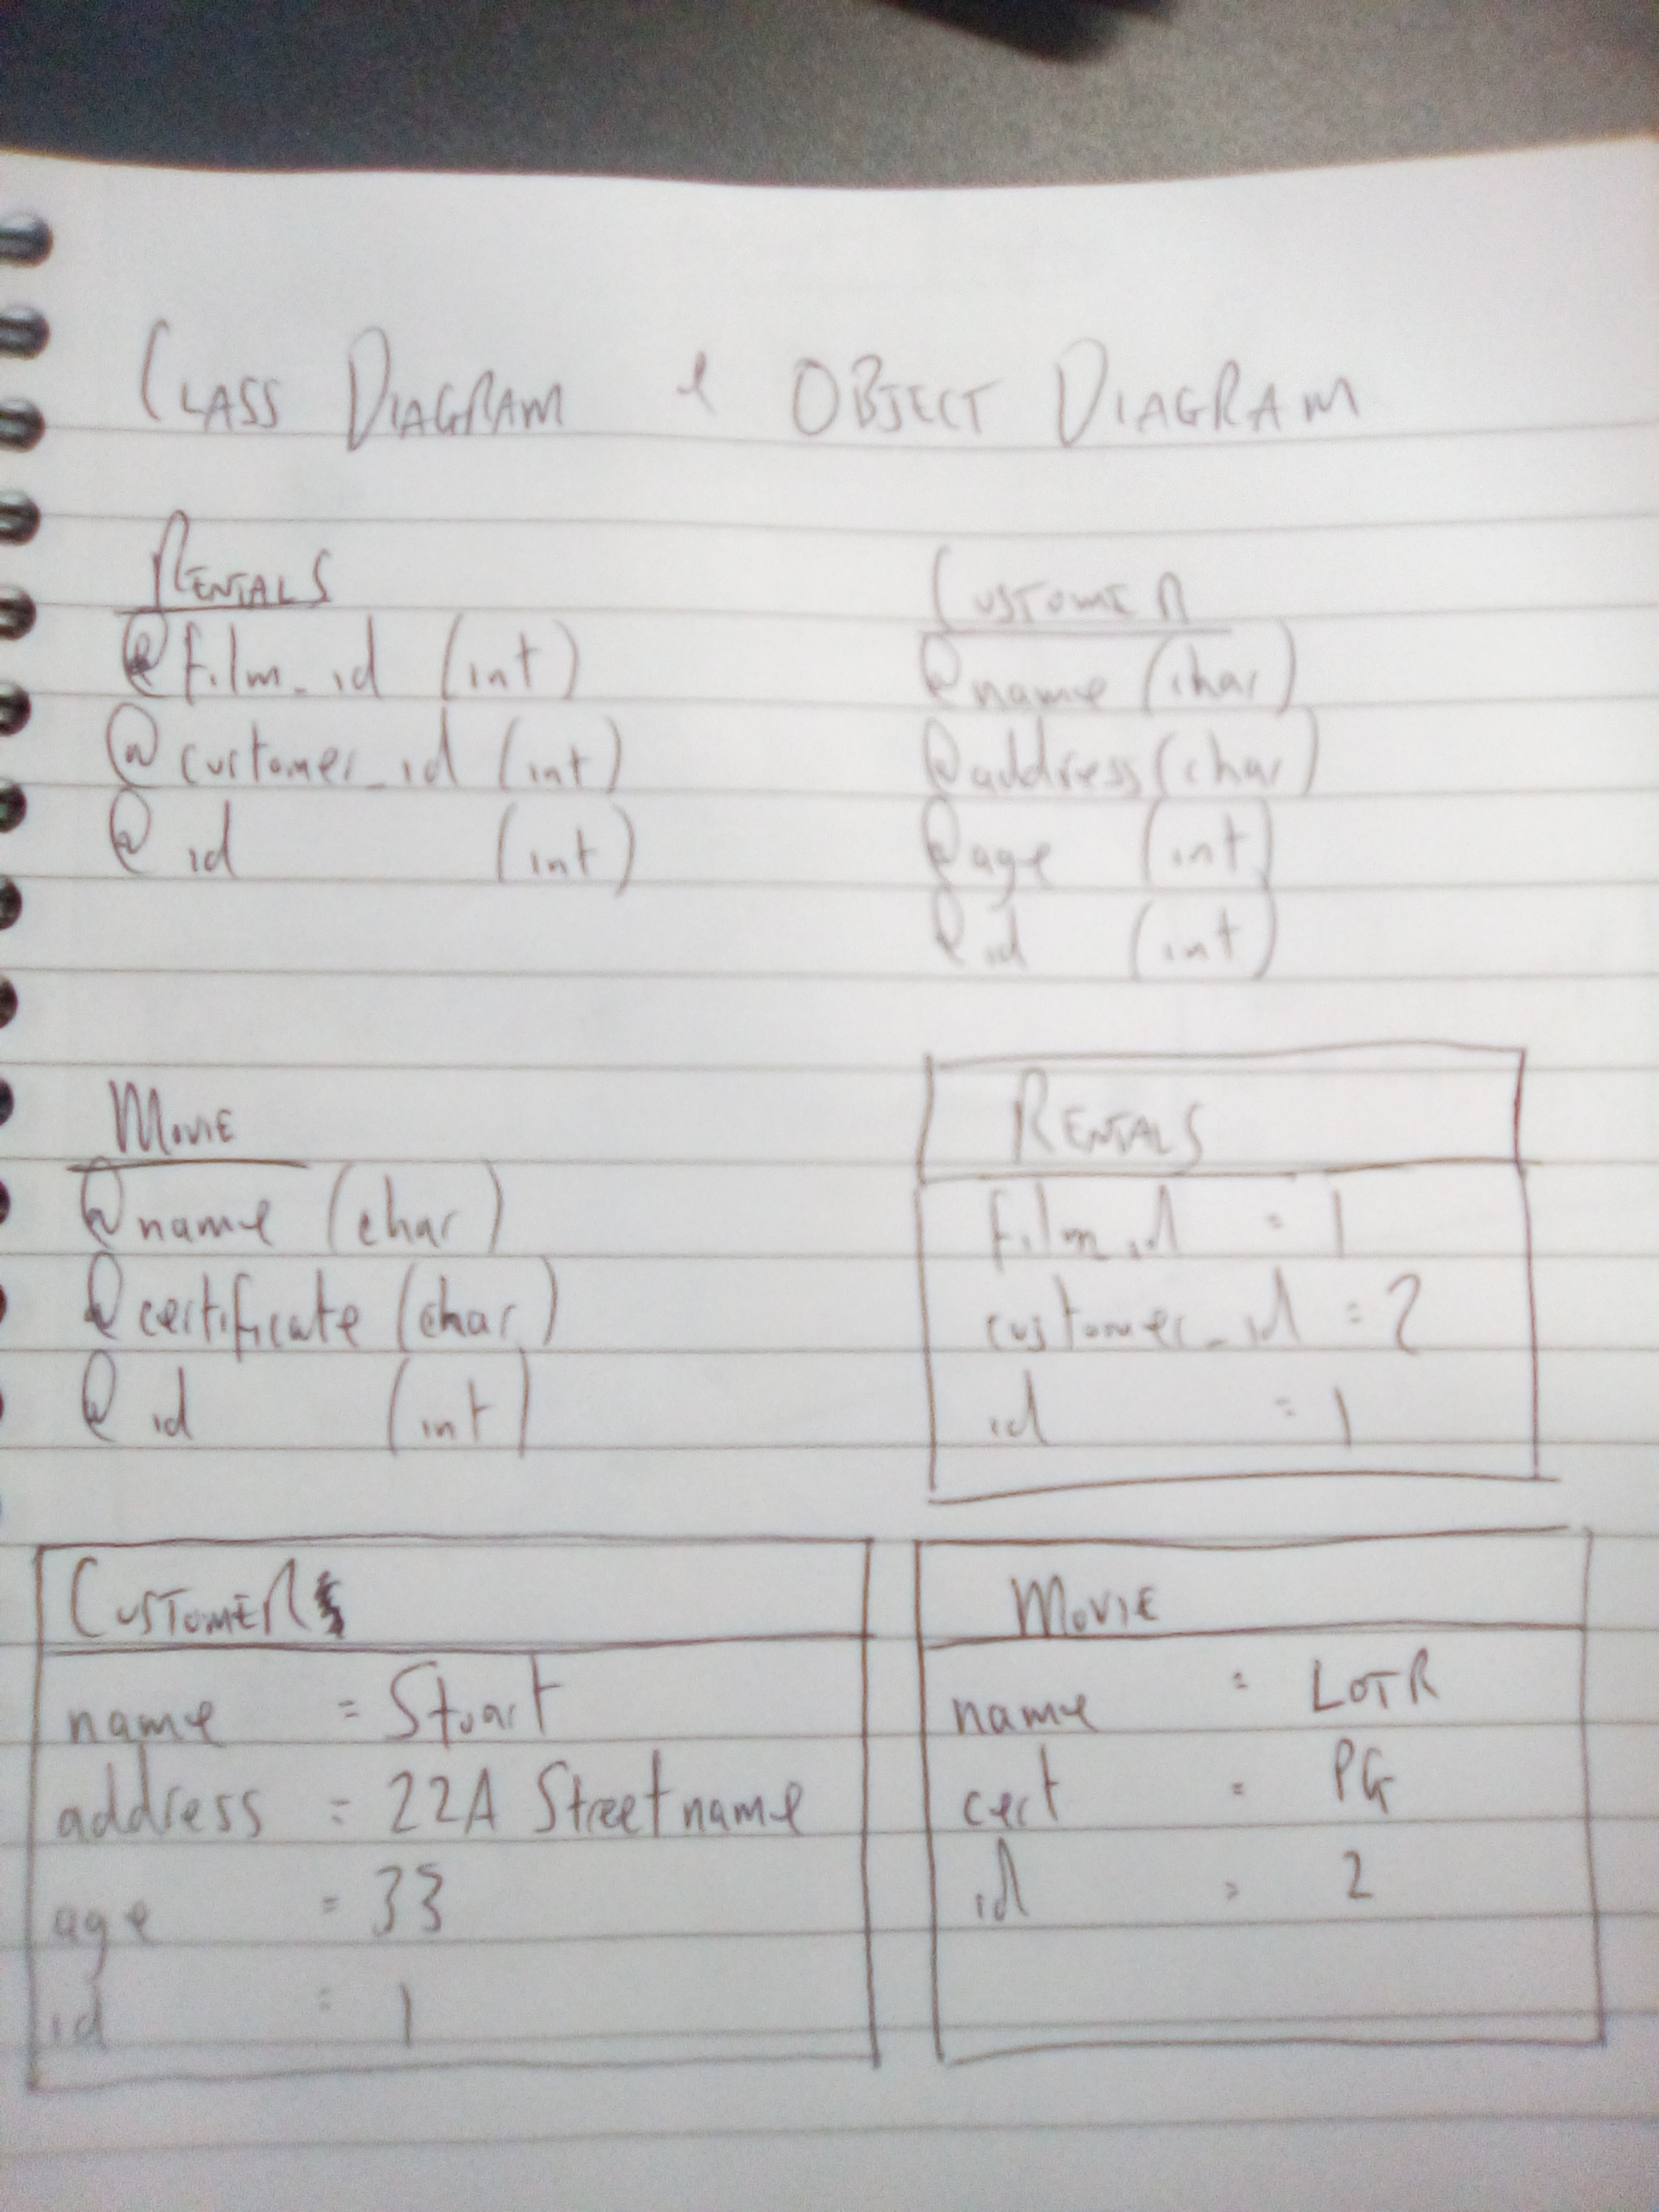 CLASS DIAGRAM & OBJECT DIAGRAM
RENTALS
@film_id (int)
@customer_id (int)
@id (int)
CUSTOMER
@name (char)
@address (char)
@age (int)
@id (int)
MOVIE
@name (char)
@certificate (char)
@id (int)
RENTALS
film_id = 1
customer_id = 2
id = 1
CUSTOMER
name = Stuart
address = 22A Streetname
age = 33
id = 1
MOVIE
name = LOTR
cert = PG
id = 2